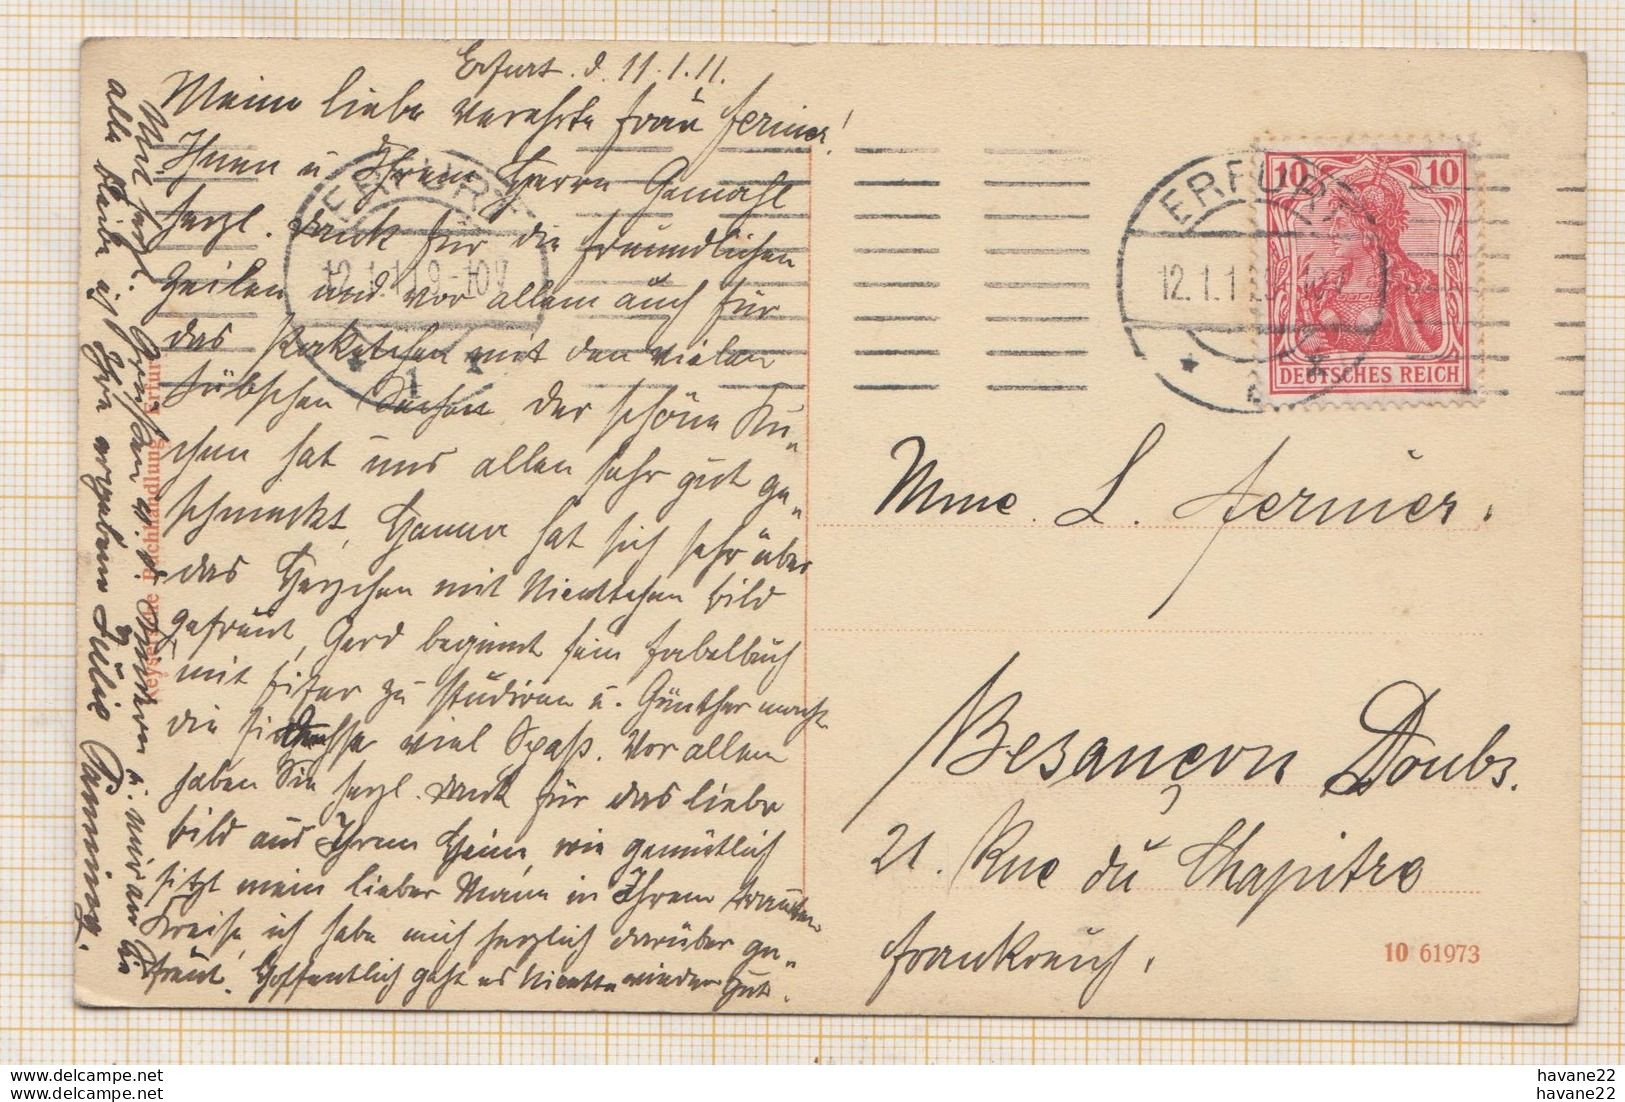 Erfurt. d. 11.1.11.
Meine liebe verehrte Frau Fernier!
Ihnen u Ihrem Herrn Gemahl
herzl. Dank für die freundlichen
Zeilen und vor allem auch für
das Paketchen mit den vielen
hübschen Sachen der schöne Ku-
chen hat uns allen sehr gut ge-
schmeckt, hat sich sehr über
das Herzchen mit bild
gefreut, Gerd beginnt sein Fabelbuch
mit Eifer zu studieren u. Günther macht
die viel Spaß. Vor allem
haben Sie herzl. Dank für das liebe
bild aus Ihrem Heim, wie gemütlich
sitzt mein lieber Mann in Ihrem trauten
Kreise, ich habe mich herzlich darüber ge-
freut. Hoffentlich geht es wieder gut.
Mit herzl. Grüßen v. d. Kindern u. mir an Sie
alle bleibe ich Ihre ergebene Julie Panning.
Keysersche Buchhandlung, Erfurt
ERFURT
12.1.11.9-10V
* 1 *
ERFURT
12.1.11.9-10V
10 10
DEUTSCHES REICH
Mme. L. Fernier.
Besançon Doubs.
21. Rue du Chapitre
Frankreich.
10 61973
delcampe.net
delcampe.net
havane22
havane22